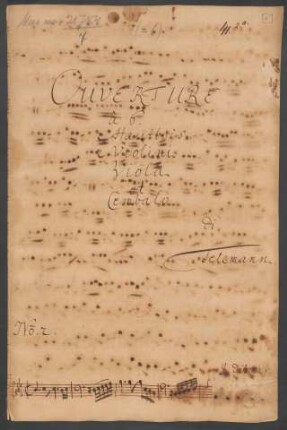 OUVERTURE
à 6.
2 Hautbois
2 Violinis
Viola
et
Cembalo
di
Telemann.
No. 2.